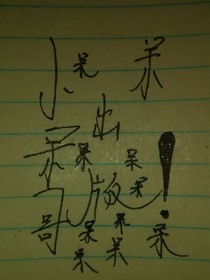 小呆呆
出
呆呆呆
呆
哥版呆！
呆
呆呆
呆呆